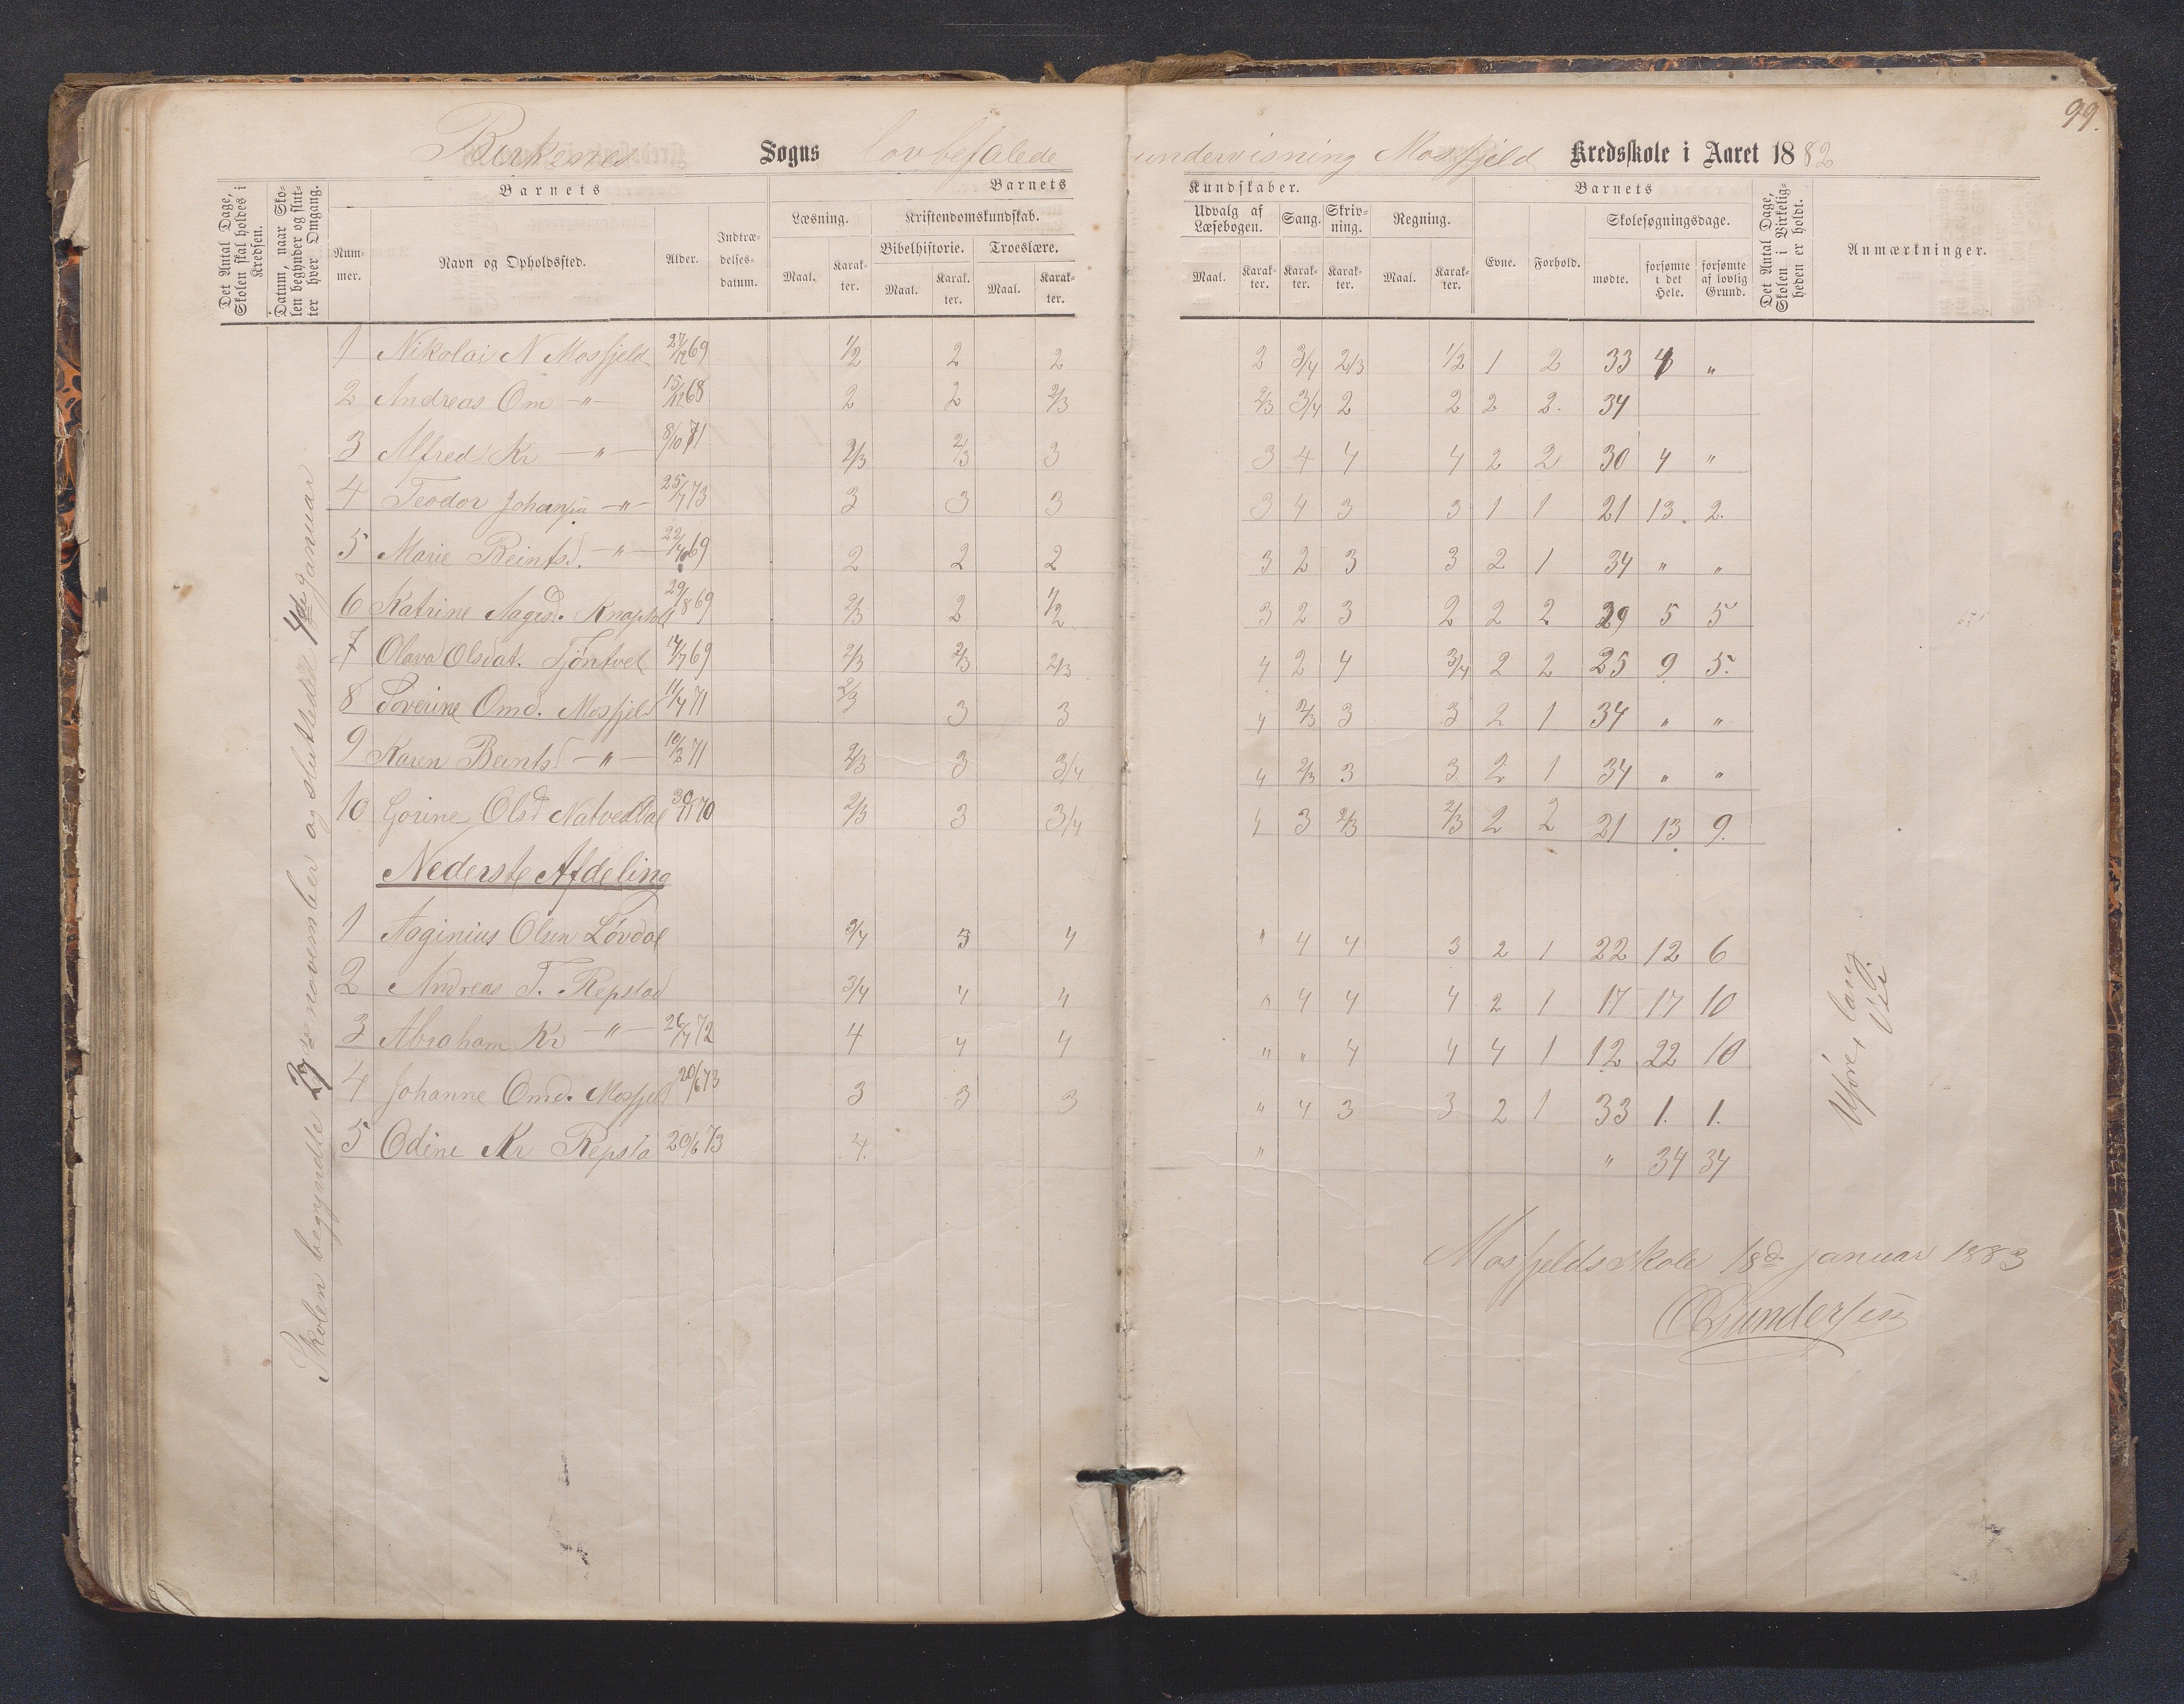 99.
Birkenes Sogns lovbefalede undervisning Mosfjeld Kredsskole i Aaret 1882
Det Antal Dage, Skolen skal holdes i Kredsen.
Datum, naar Skolen begynder og slutter hver Omgang.
Barnets
Nummer.
Navn og Opholdssted.
Alder.
Indtrædelsesdatum.
Barnets
Læsning.
Maal.
Karakter.
Kristendomskundskab.
Bibelhistorie.
Maal.
Karakter.
Troeslære.
Maal.
Karakter.
Kundskaber.
Udvalg af Læsebogen.
Maal.
Karakter.
Sang.
Karakter.
Skrivning.
Karakter.
Regning.
Maal.
Karakter.
Barnets
Evne.
Forhold.
Skolesøgningsdage.
mødte.
forsømte i det Hele.
forsømte af lovlig Grund.
Det Antal Dage, Skolen i Virkeligheden er holdt.
Anmærkninger.
Skolen begyndte 27de november og sluttede 4de Januar
1 Nikolai N Mosfjeld 27/12 69 1/2 2 2 2 3/4 2/3 1/2 1 2 33 1 "
2 Andreas Om -"- 15/12 68 2 2 2/3 2/3 3/4 2 2 2 2. 34
3 Alfred Kr -"- 8/10 71 2/3 2/3 3 3 4 4 4 2 2 30 4 "
4 Teodor Johansen -"- 25/7 73 3 3 3 3 4 3 3 1 1 21 13. 2.
5 Marie Beintsd. -"- 69 2 2 2 3 2 3 3 2 1 34 " "
6 Katrine Aagesd. 29/8 69 2/3 2 1/2 3 2 3 2 2 2 29 5 5
7 Olava Olsdat. Tjøntvet 69 2/3 2/3 2/3 4 2 4 3/4 2 2 25 9 5.
8 Severine Omd. Mosfjeld 11/4 71 2/3 3 3 4 2/3 3 3 2 1 34 " "
9 Karen Beintsd -"- 71 2/3 3 3/4 4 2/3 3 3 2 1 34 " "
10 Gorine Olsd Natvedtdal 30/11 70 2/3 3 3/4 4 3 2/3 2/3 2 2 21 13. 9.
Nederste Afdeling
1 Aaginius Olsen Løvdal 3/4 3 4 " 4 4 3 2 1 22 12 6
2 Andreas T. Repstad 3/4 4 4 " 4 4 4 2 1 17 17 10
3 Abraham Kr -"- 26/7 72 4 4 4 " " 4 4 4 1 12 22 10
4 Johanne Omd. Mosfjeld 20/6 73 3 3 3 " 4 3 3 2 1 33 1. 1.
5 Odine Kr Repsta 20/6 73 4. " " 34 34
Uføre, lang Vei
Mosfjeldsskole 18d. januar 1883
O Gundersen